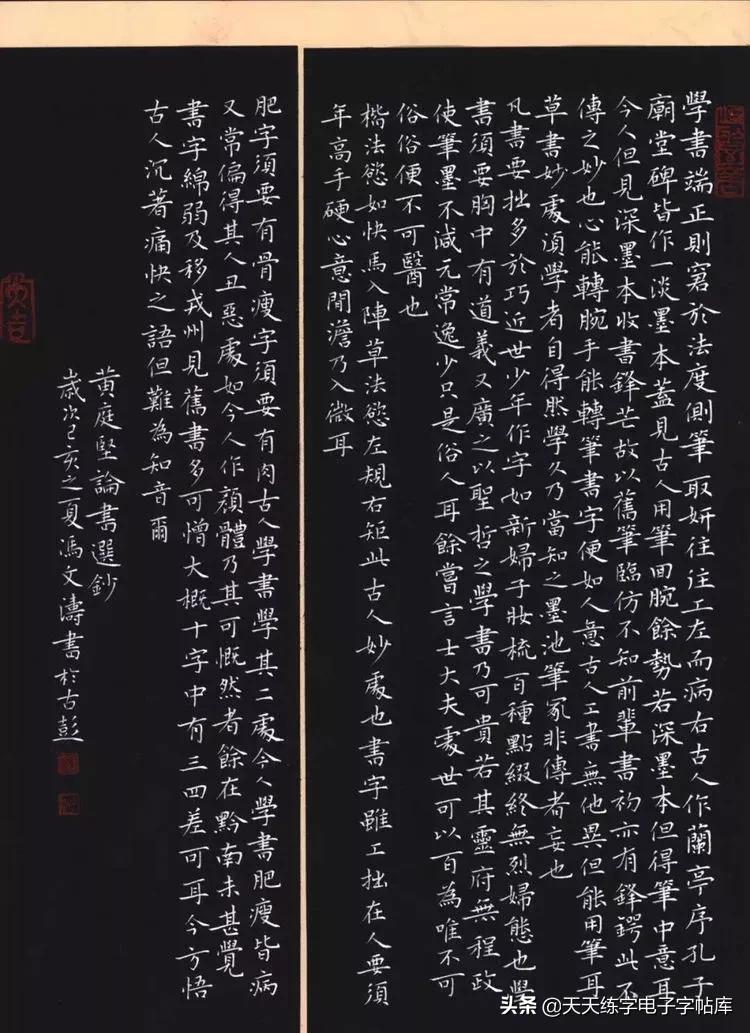 學書端正則窘於法度側筆取妍往往工左而病右古人作蘭亭序孔子
廟堂碑皆作一淡墨本蓋見古人用筆回腕餘勢若深墨本但得筆中意耳
今人但見深墨本收書鋒芒故以舊筆臨仿不知前輩書初亦有鋒鍔此不
傳之妙也心能轉腕手能轉筆書字便如人意古人工書無他異但能用筆耳
草書妙處須學者自得然學久乃當知之墨池筆冢非傳者妄也
凡書要拙多於巧近世少年作字如新婦子妝梳百種點綴終無烈婦態也學
書須要胸中有道義又廣之以聖哲之學書乃可貴若其靈府無程政
使筆墨不減元常逸少只是俗人耳餘嘗言士大夫處世可以百為唯不可
俗俗便不可醫也
楷法慾如快馬入陣草法慾左規右矩此古人妙處也書字雖工拙在人要須
年高手硬心意閒澹乃入微耳
肥字須要有骨瘦字須要有肉古人學書學其二處今人學書肥瘦皆病
又常偏得其人丑惡處如今人作顏體乃其可慨然者餘在黔南未甚覺
書字綿弱及移戎州見舊書多可憎大概十字中有三四差可耳今方悟
古人沉著痛快之語但難為知音爾
黃庭堅論書選鈔
歲次己亥之夏馮文濤書於古彭
头条 @天天练字电子字帖库